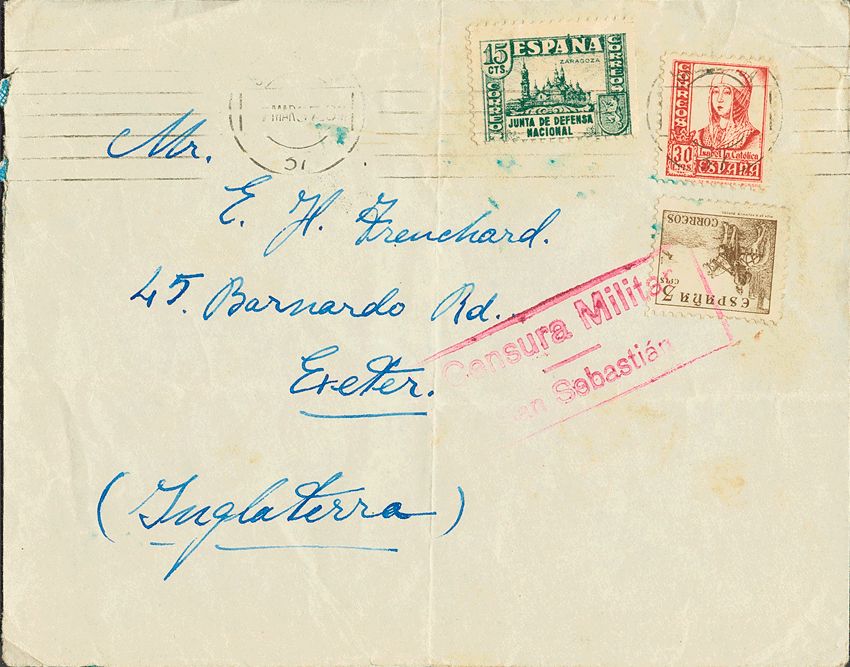 15 CTS. ESPAÑA
ZARAGOZA
CORREOS
CORREOS
JUNTA DE DEFENSA
NACIONAL
CORREOS
30 CTS.
Isabel la Católica
ESPAÑA
CORREOS
ESPAÑA
CTS
MAR
37
Mr.
E. H. Trenchard.
45. Barnardo Rd.
Exeter.
(Inglaterra)
Censura Militar
San Sebastián